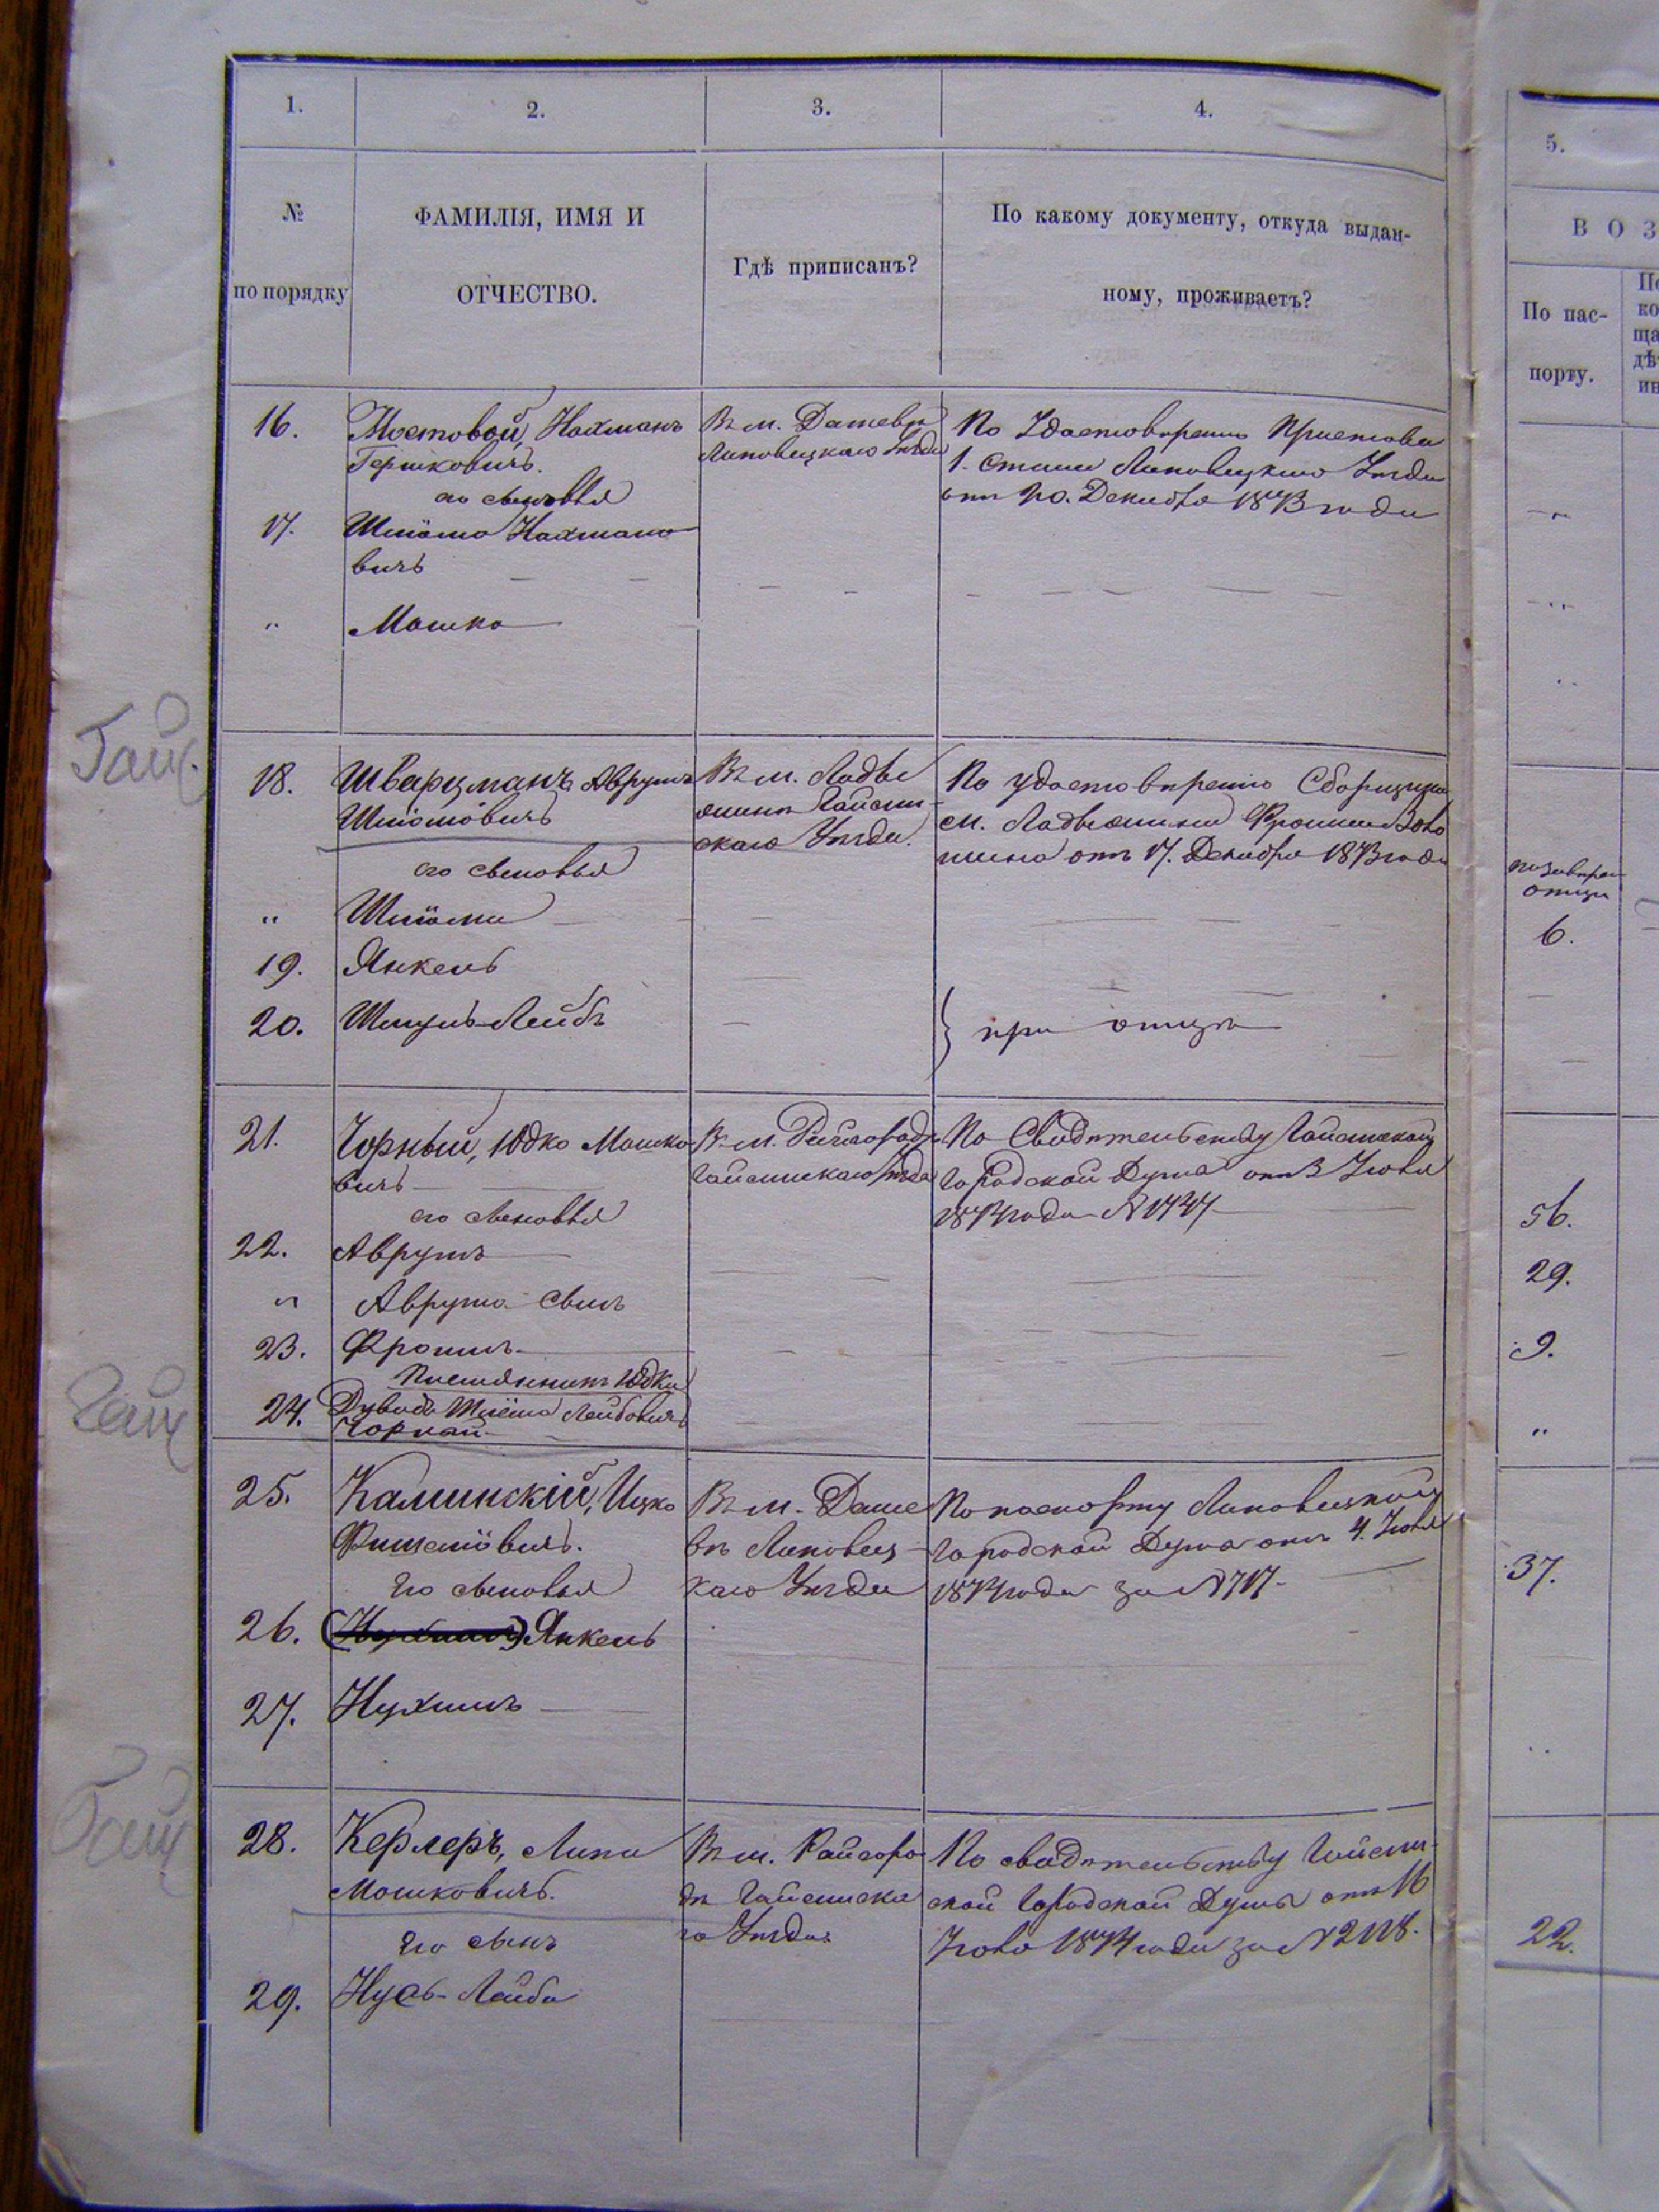 1. 2. 3. 4. 5.
№
по порядку
ФАМИЛІЯ, ИМЯ И
ОТЧЕСТВО.
Гдѣ приписанъ?
По какому документу, откуда выдан-
ному, проживаетъ?
В О З
По пас-
порту.
16. Мостовой, Нахманъ
Гершковичъ.
его сыновья
Въ м. Дашевѣ
Липовецкаго Уѣзда
По Удостовѣренію Пристава
1. Стана Липовецкаго Уѣзда
отъ 20. Декабря 1873 года
17. Шлёма Нахмано
вичъ
" Мошко
Гайс.
18. Шварцманъ, Аврумъ
Шлёмовичъ
его сыновья
Въ м. Ладыжинѣ Гайсин
скаго Уѣзда.
По удостовѣренію Сборщика
м. Ладыжина Фроима
отъ 17. Декабря 1873 года
" Шлёма
отца
6.
19. Янкель
20. Шмуль-Лейбъ
при отцѣ
21. Чорный, Юдко Мошко
вичъ
его сыновья
Въ м. Райгородѣ
Гайсинскаго Уѣзда
По Свидѣтельству Гайсинской
Городской Думы отъ 3 Июня
1874 года №
56.
22. Аврумъ
29.
" Аврума сынъ
23. Фроимъ
9.
Племянникъ Юдки
24. Дувидъ Шлёма Лейбовичъ
Чорный
"
Гайс
25. Каминскій, Ицко
Фишелёвичъ.
Его сыновья
Въ м. Даше
вѣ Липовец
каго Уѣзда
По паспорту Липовецкой
Городской Думы отъ 4. Июня
1874 года за № 717
37.
26. (Нухимъ) Янкель
27. Нухимъ
Гайс
28. Керлеръ, Липа
Мошковичъ.
Его сынъ
Въ м. Райгоро
дѣ Гайсинска
го Уѣзда
По свидѣтельству Гайсин
ской Городской Думы отъ 16
Июня 1874 года за № 2118.
22.
29. Нусь-Лейба